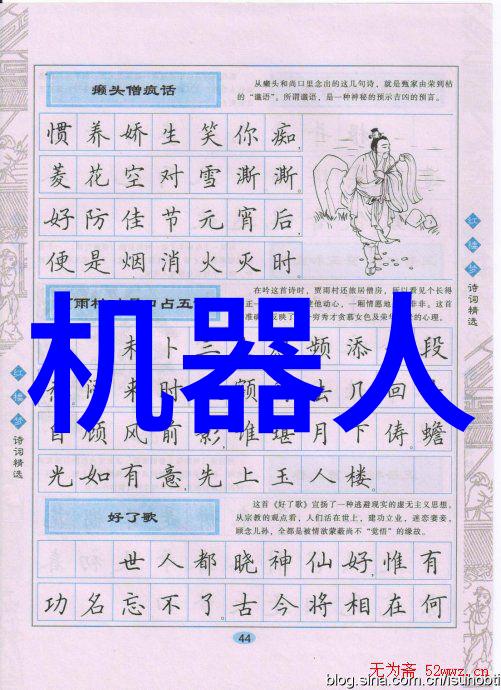 癞头僧疯话
从癞头和尚口里念出的这几句诗，就是甄家由荣到枯
的“谶语”。所谓谶语，是一种神秘的预示吉凶的预言。
惯养娇生笑你痴，
菱花空对雪澌澌。
好防佳节元宵后，
便是烟消火灭时。
雨村 口占五
在吟这首诗时，贾雨村还旅居僧房，所以看见个长得
机器人
未卜三 频添 段
来时 额 去几回
自顾风前影，谁堪月下俦。蟾
光如有意，先上玉人楼。
好了歌
这首《好了歌》宣扬了一种逃避现实的虚无主义思想。
从宗教的观点看，人们活在世上，建功立业，迷恋妻妾，
顾念儿孙，全都是被情欲蒙蔽尚不“觉悟”的缘故。
世人都晓神仙好，惟有
功名忘不了。古今将相在何
44
红楼梦
诗词精选
红楼梦
诗词精选
无为斋 52wwz.cn
blog.sina.com.cn/isunobti